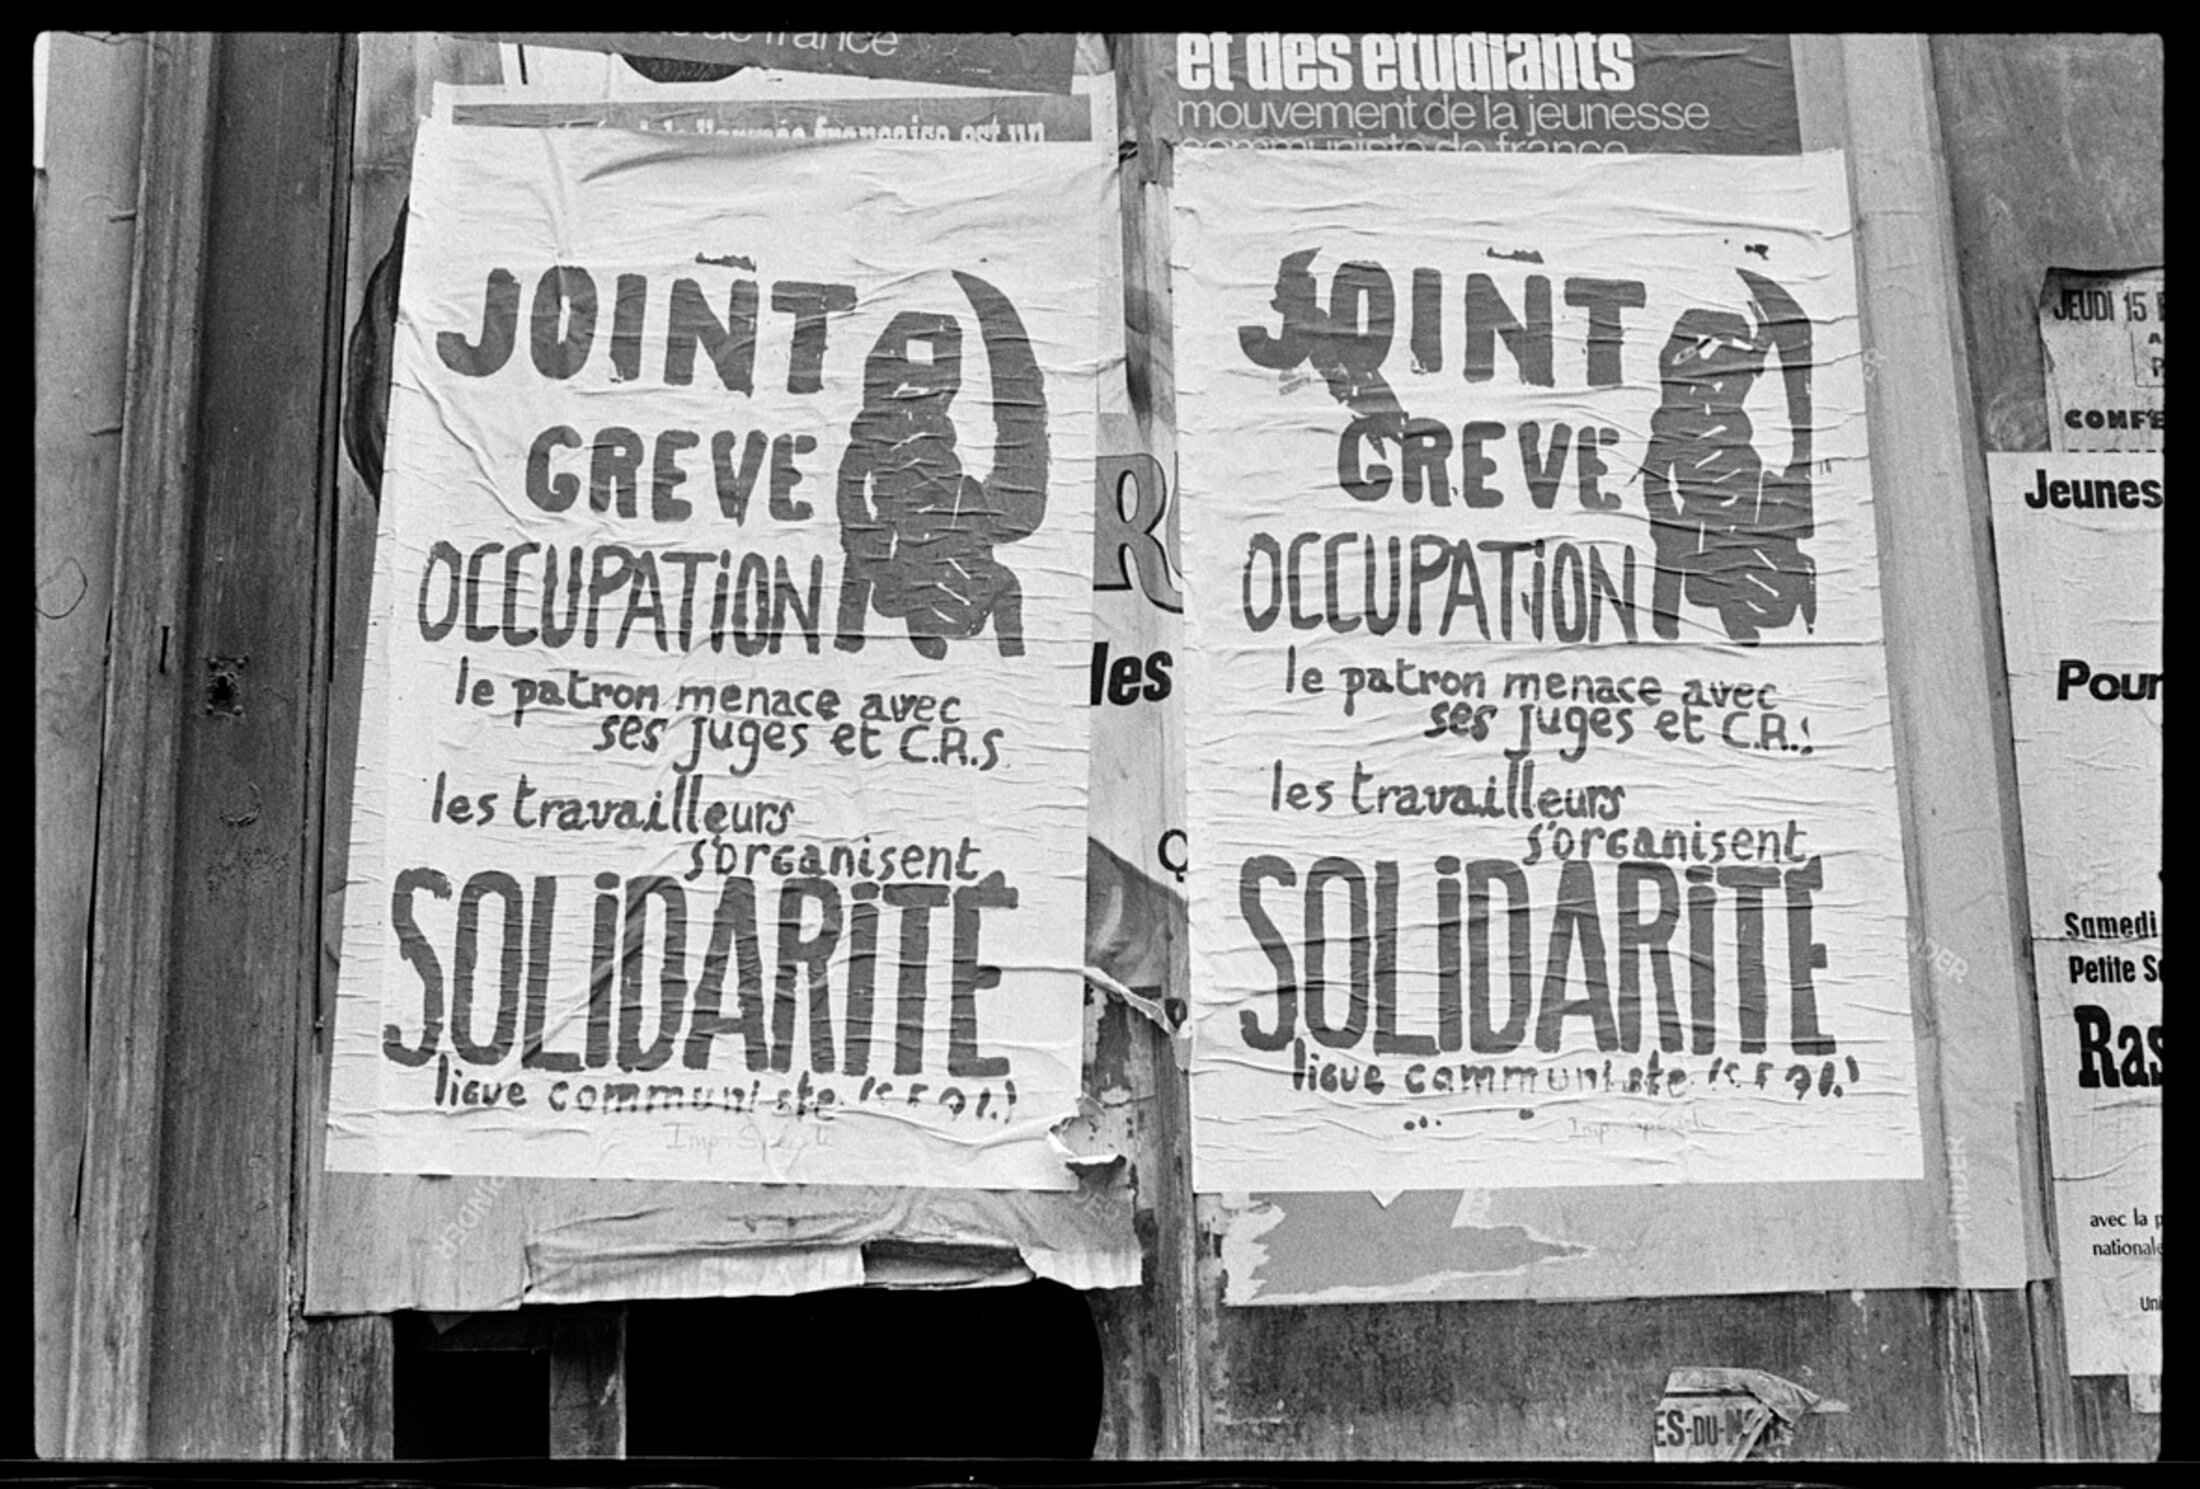 de france
l'armée française est un
JOINT
GREVE
OCCUPATION
le patron menace avec
ses juges et C.R.S.
les travailleurs
s'organisent
SOLIDARITE
ligue communiste (S.F.Q.I.)
Imp. Spéciale
et des étudiants
mouvement de la jeunesse
communiste de france
JOINT
GREVE
OCCUPATION
le patron menace avec
ses juges et C.R.S
les travailleurs
s'organisent
SOLIDARITE
ligue communiste (S.F.Q.I.)
Imp. Spéciale
les
JEUDI 15
CONFE
Jeunes
Pour
Samedi
Petite S
Ras
avec la p
nationale
Uni
ES-DU-NORD